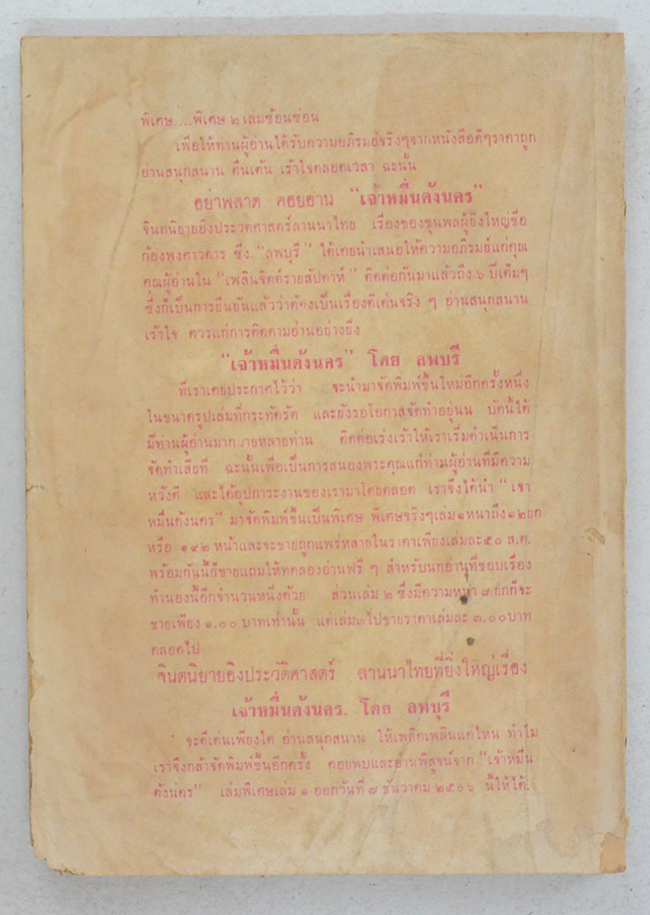 พิเศษ....พิเศษ ๒ เล่มซ้อนซ่อน
เพื่อให้ท่านผู้อ่านได้รับความอภิรมย์จริงๆจากหนังสือดีๆราคาถูก
อ่านสนุกสนาน ตื่นเต้น เร้าใจตลอดเวลา ฉะนั้น
อย่าพลาด คอยอ่าน "เจ้าหมื่นด้งนคร"
จินตนิยายอิงประวัติศาสตร์ลานนาไทย เรื่องของขุนพลผู้ยิ่งใหญ่ชื่อ
ก้องพงศาวดาร ซึ่ง "ลพบุรี" ได้เคยนำเสนอให้ความอภิรมย์แก่คุณ
คุณผู้อ่านใน "เพลินจิตต์รายสัปดาห์" ติดต่อกันมาแล้วถึง ๖ ปีเต็มๆ
ซึ่งก็เป็นการยืนยันแล้วว่าต้องเป็นเรื่องดีเด่นจริง ๆ อ่านสนุกสนาน
เร้าใจ ควรแก่การติดตามอ่านอย่างยิ่ง
"เจ้าหมื่นด้งนคร" โดย ลพบุรี
ที่เราเคยประกาศไว้ว่า จะนำมาจัดพิมพ์ขึ้นใหม่อีกครั้งหนึ่ง
ในขนาดรูปเล่มที่กระทัดรัด และยังรอโอกาสจัดทำอยู่นน บัดนี้ได้
มีท่านผู้อ่านมากมายหลายท่าน ติดต่อเร่งเร้าให้เราเริ่มดำเนินการ
จัดทำเสียที ฉะนั้นเพื่อเป็นการสนองพระคุณแก่ท่านผู้อ่านที่มีความ
หวังดี และได้อุปการะงานของเรามาโดยตลอด เราจึงได้นำ "เจ้า
หมื่นด้งนคร" มาจัดพิมพ์ขึ้นเป็นพิเศษ พิเศษจริงๆเล่ม๑หนาถึง๑๒ยก
หรือ ๑๙๒ หน้าและจะขายถูกแพร่หลายในราคาเพียงเล่มละ๕๐ ส.ต.
พร้อมกันนี้ก็ขายแถมให้ทดลองอ่านฟรี ๆ สำหรับนักอ่านที่ชอบเรื่อง
ทำนองนี้อีกจำนวนหนึ่งด้วย ส่วนเล่ม ๒ ซึ่งมีความหนา ๗ ยกก็จะ
ขายเพียง ๑.๐๐ บาทเท่านั้น แต่เล่ม๓ไปขายราคาเล่มละ ๓.๐๐บาท
ตลอดไป
จินตนิยายอิงประวัติศาสตร์ ลานนาไทยที่ยิ่งใหญ่เรื่อง
เจ้าหมื่นด้งนคร. โดย ลพบุรี
จะดีเด่นเพียงใด อ่านสนุกสนาน ให้เพลิดเพลินแค่ไหน ทำไม
เราจึงกล้าจัดพิมพ์ขึ้นอีกครั้ง คอยพบและอ่านพิสูจน์จาก "เจ้าหมื่น
ด้งนคร" เล่มพิเศษเล่ม ๑ ออกวันที่ ๗ ธันวาคม ๒๕๐๖ นี้ให้ได้.